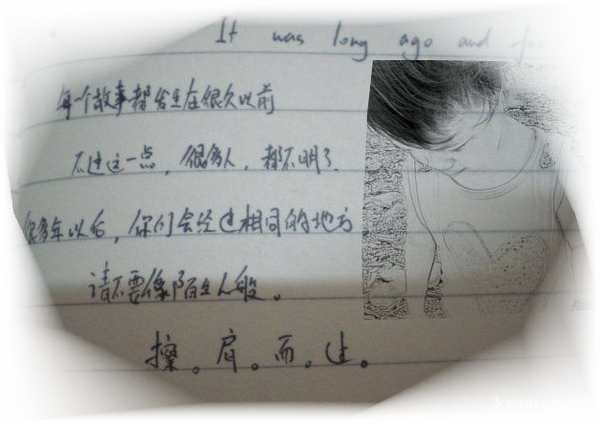 It was long ago and far
每一个故事都发生在很久以前
不过这一点，很多人，都不明了.
很多年以后，你们会经过相同的地方
请不要像陌生人般。
擦。肩。而。过。